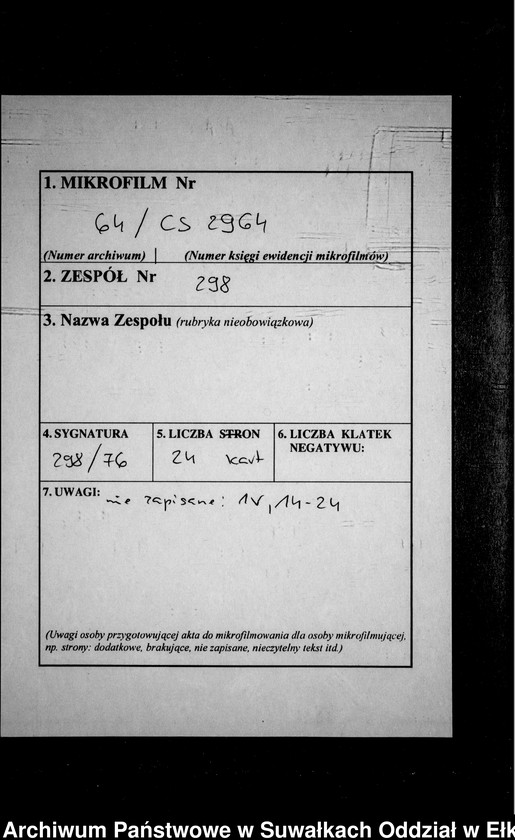 1. MIKROFILM Nr
64 / CS 2964
(Numer archiwum) | (Numer księgi ewidencji mikrofilmów)
2. ZESPÓŁ Nr 298
3. Nazwa Zespołu (rubryka nieobowiązkowa)
4. SYGNATURA
298/76
5. LICZBA STRON
24 kart
6. LICZBA KLATEK
NEGATYWU:
7. UWAGI: nie zapisane: 1V, 14-24
(Uwagi osoby przygotowującej akta do mikrofilmowania dla osoby mikrofilmującej,
np. strony: dodatkowe, brakujące, nie zapisane, nieczytelny tekst itd.)
Archiwum Państwowe w Suwałkach Oddział w Ełk